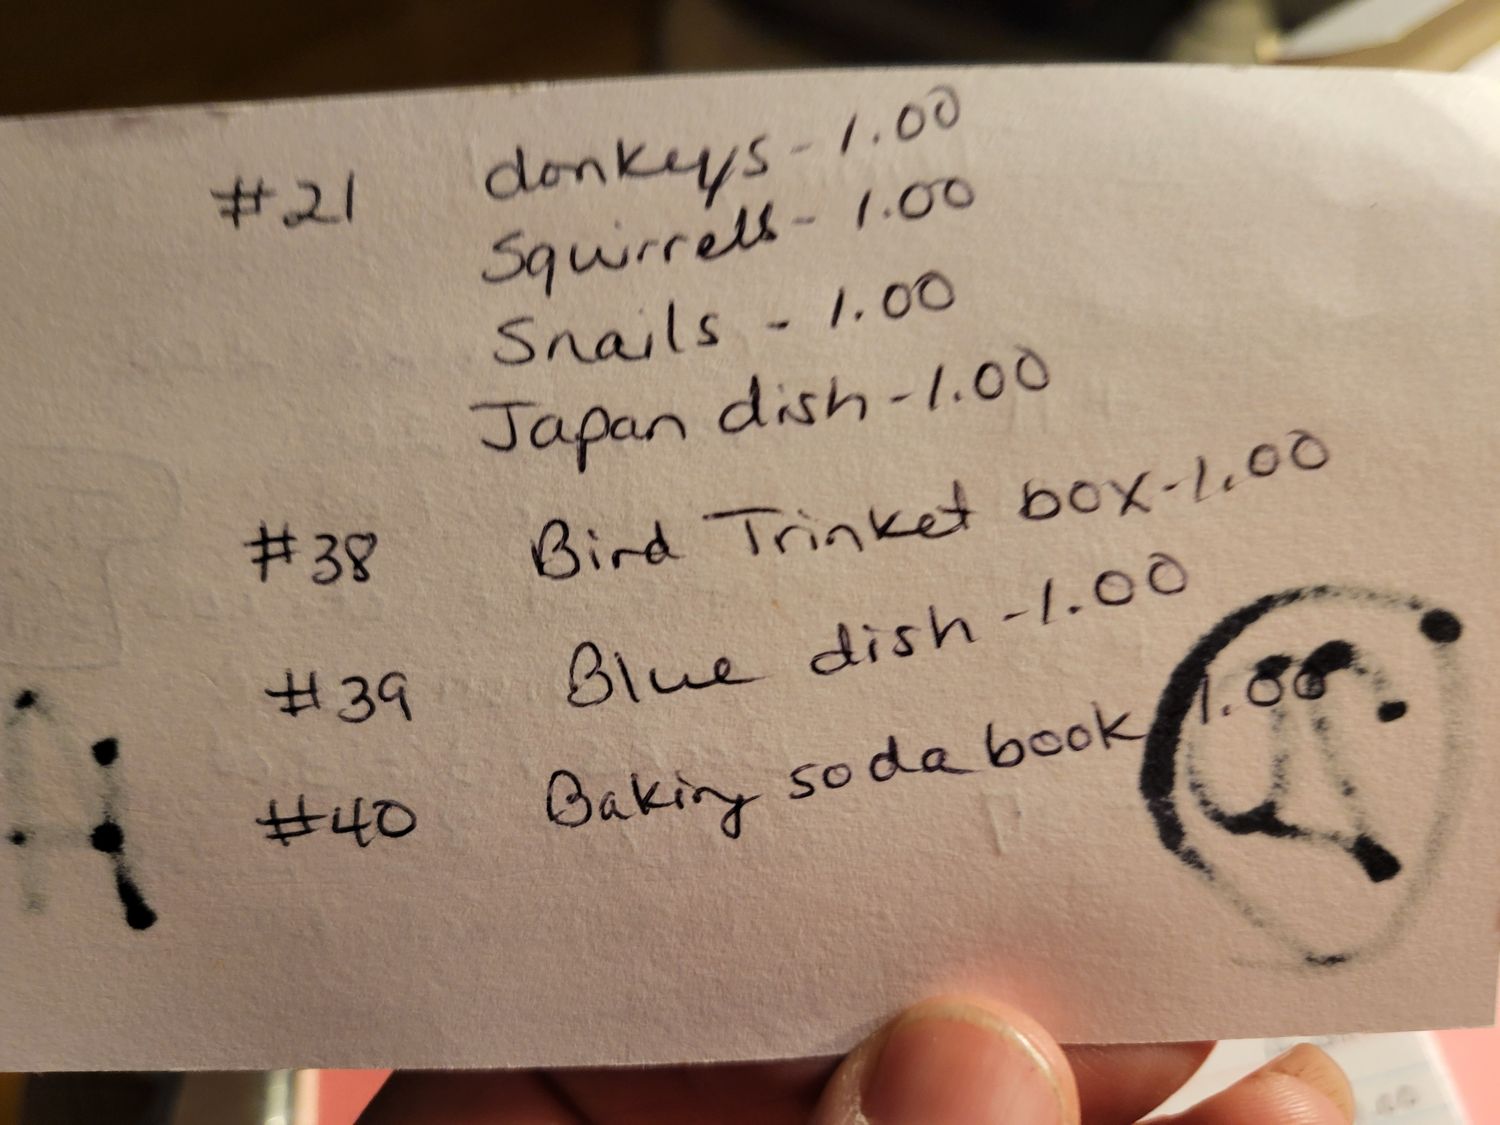 #21 donkeys - 1.00
Squirrells - 1.00
Snails - 1.00
Japan dish - 1.00
#38 Bird Trinket box - 1.00
#39 Blue dish - 1.00
#40 Baking soda book 1.00